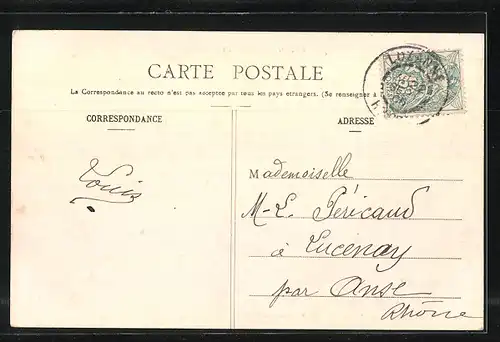 CARTE POSTALE
La Correspondance au recto n'est pas acceptée par tous les pays étrangers. (Se renseigner à
CORRESPONDANCE
ADRESSE
Louis
Mademoiselle
M-L. Péricaud
à Lucenay
par Anse
Rhône